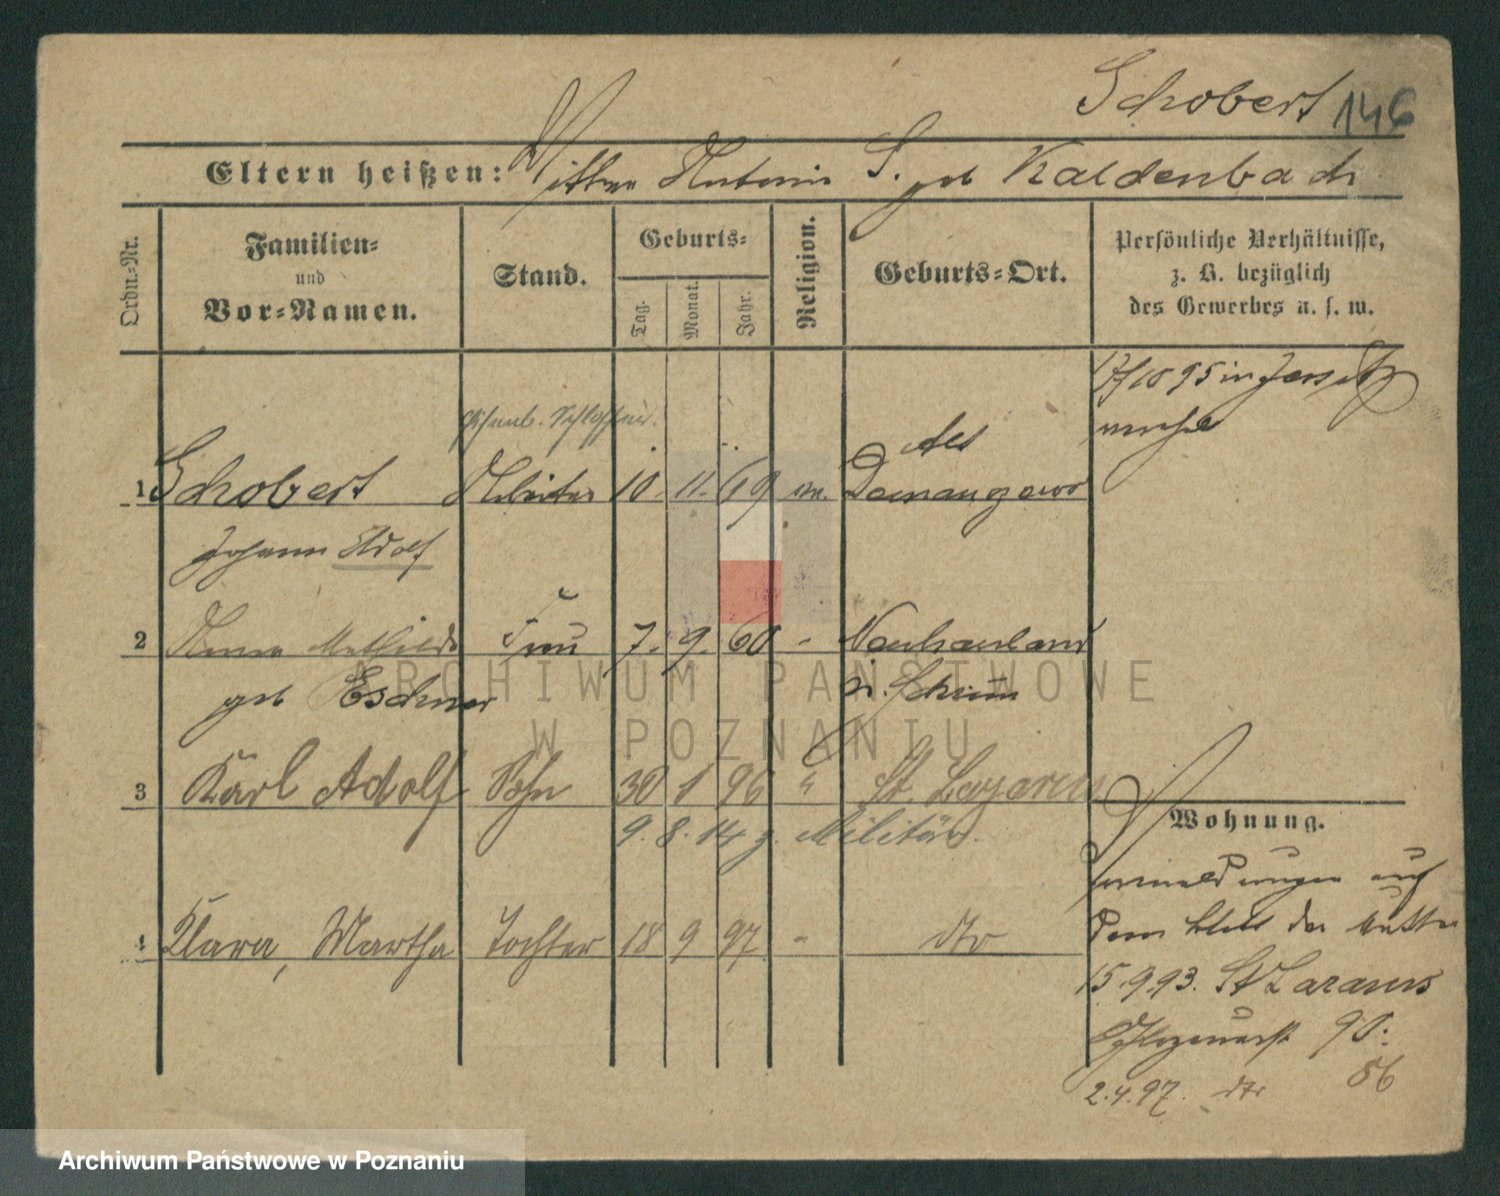 Schobert 146
Eltern heißen: Witwe Antonie S. geb Kaldenbach
Ordn.-Nr.
Familien-
und
Vor-Namen.
Stand.
Geburts-
Tag.
Monat.
Jahr.
Religion.
Geburts-Ort.
Persönliche Verhältnisse,
z. B. bezüglich
des Gewerbes u. s. w.
17/10 95 in Jersitz
1 Schobert Arbeiter 10. 11. 69
Johann Adolf
2 Anna Mathilde Frau 7. 9. 60 -
geb
3 Karl Adolf Sohn 30 1 96 " St. Lazarus
9. 8. 14 z. Militär.
Wohnung.
auf
dem der Mutter
4 Klara, Martha Tochter 18 9 97 - dto
15.9.93. St Lazarus
90.
2.4.97. dto 86
ARCHIWUM PAŃSTWOWE
W POZNANIU
Archiwum Państwowe w Poznaniu